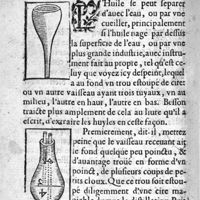 L'Huile se peut separer
d'auec l'eau, ou par vne
cueiller, principalement
si l'huile nage par dessus
la superficie de l'eau, ou par vne
plus grande industrie, auec instru-
ment fait au propre, tel qu'est ce-
luy que voyez icy despeint, lequel
a au fond vn trou estoupé de cire:
ou vn autre vaisseau ayant trois tuyaux, vn au
milieu, l'autre en haut, l'autre en bas. Besson
tracte plus amplement de cela au liure qu'il a
escrit, d'extraire les huyles en ceste façon.
Premierement, dit-il, mettez
peine que le vaisseau receuant ait
le fond quelque peu poinctu, &
d'auantage troué en forme d'vn
poinct, de plusieurs coups de pe-
rits cloux. Que ce trou soit estou-
pé diligemment d'vne cire ma-